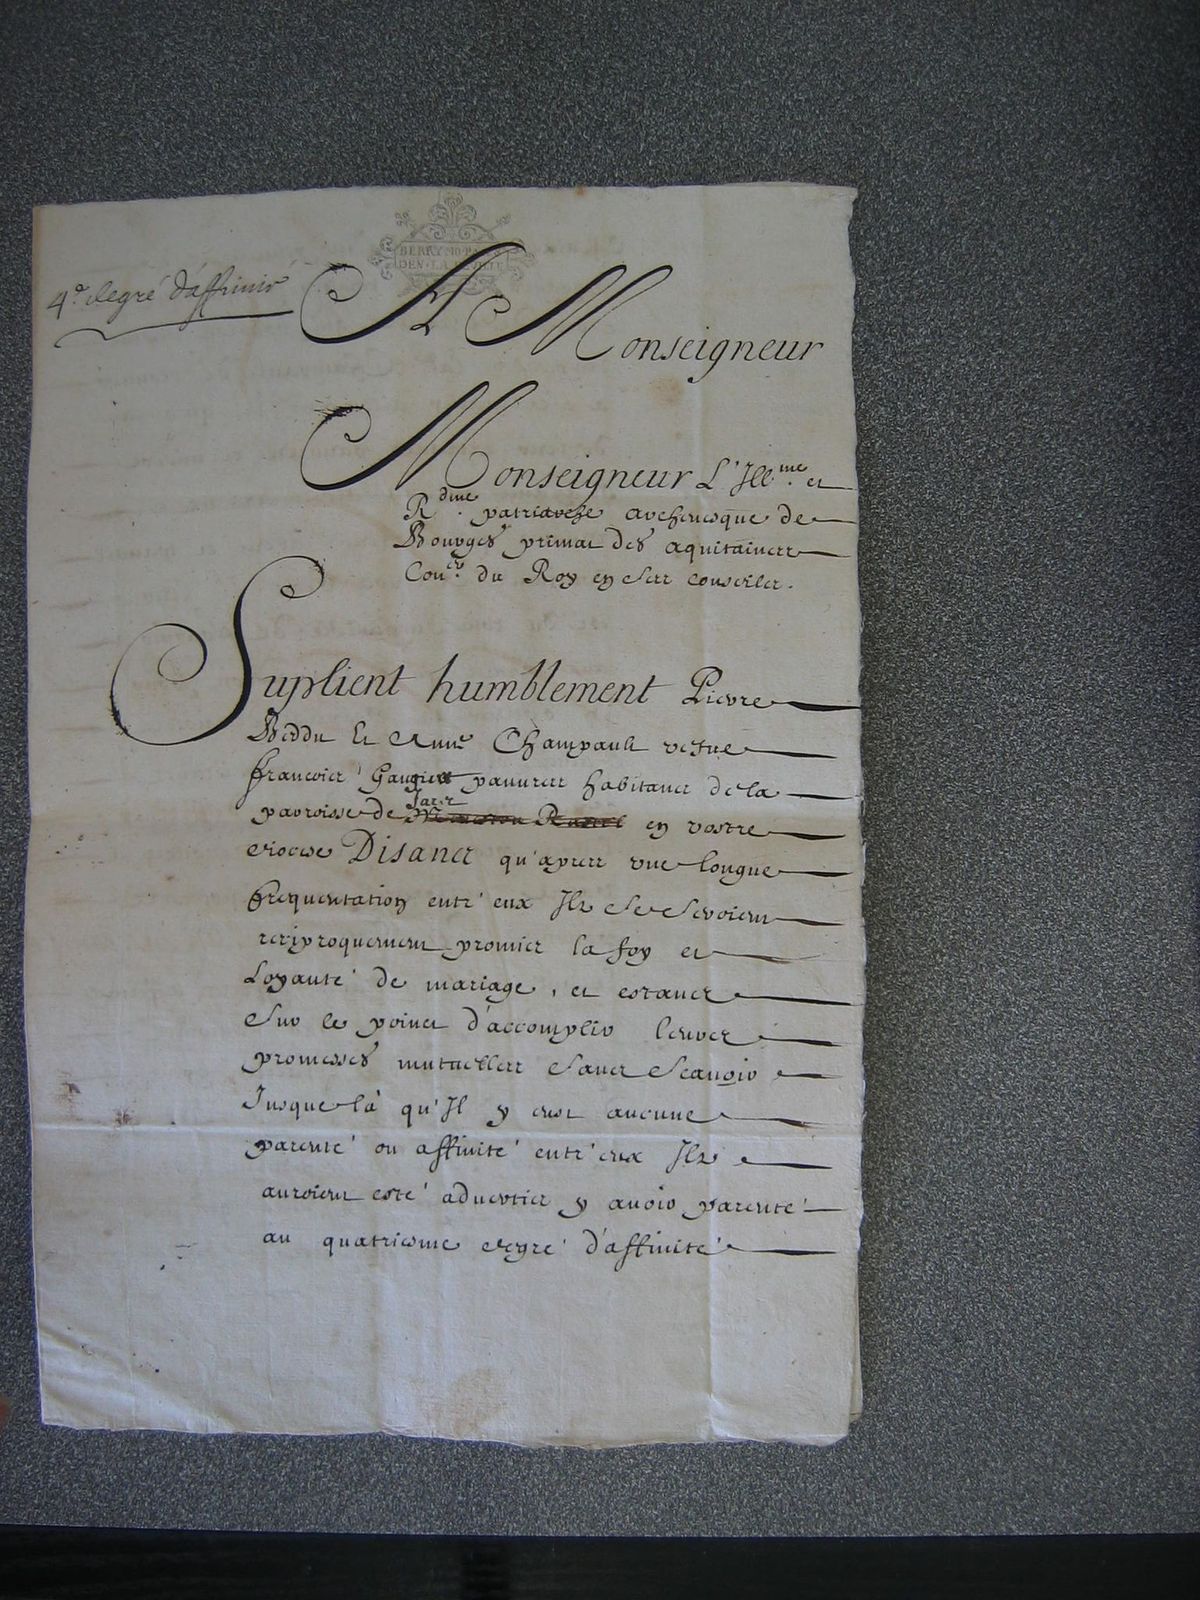 BERRY MO
DEN LA
4e degré d'affinité
A Monseigneur
Monseigneur L'Illme et
Rdme patriarche archevesque de
Bourges primat des aquitaines
Coner du Roy en ses conseilz.
Suplient humblement Pierre
Beddu et Anne Champault vefue
francois pauures habitans de la
parroisse de Jars en vostre
diocese Disant qu'apres vne longue
frequentation entr'eux Ilz se seroient
reciproquement promis la foy et
Loyauté de mariage, et estans
sur le point d'accomplir leurs
promesses mutuelles sans scauoir
Jusque là qu'Il y eust aucune
parenté ou affinité entr'eux Ilz
auroient esté aduertis y auoir parenté
au quatriesme degré d'affinité